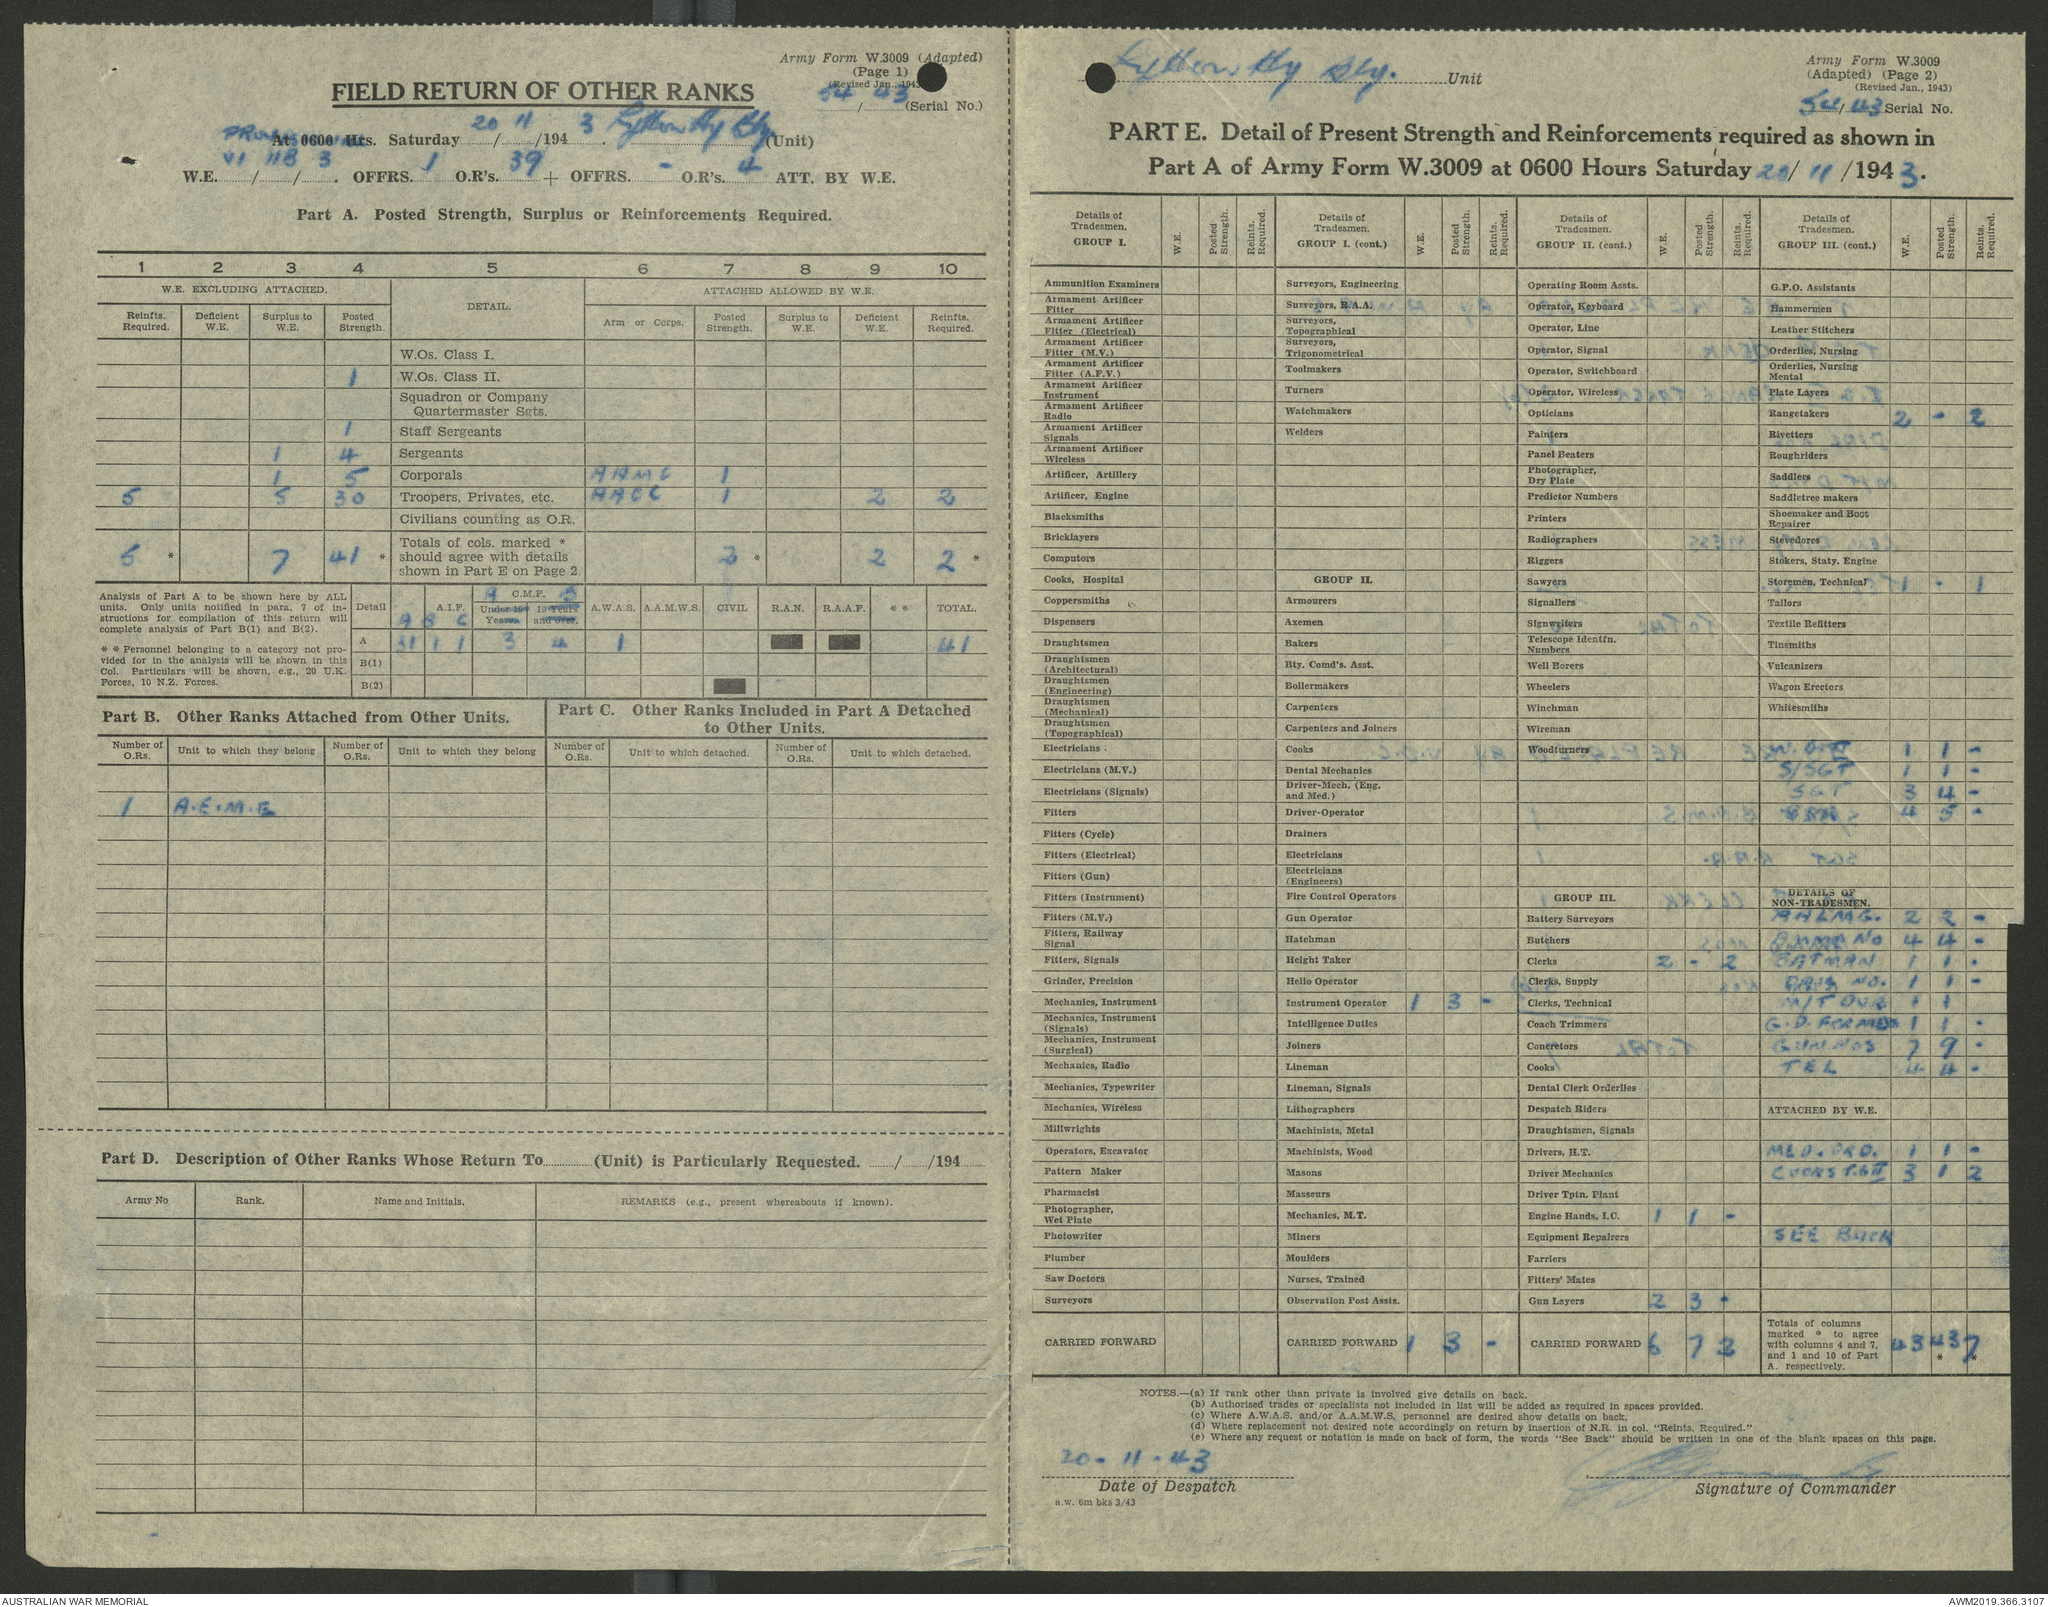 Army Form W.3009 (Adapted)
(Page 1)
(Revised Jan., 1943)
FIELD RETURN OF OTHER RANKS
54/43 (Serial No.)
At 0600 Hrs. Saturday 20/11/1943 Lytton Hy Bty (Unit)
W.E. VI/11B/3. OFFRS. 1 O.R's. 39 + OFFRS. - O.R's. 4 ATT. BY W.E.
Part A. Posted Strength, Surplus or Reinforcements Required.
1 2 3 4 5 6 7 8 9 10
W.E. EXCLUDING ATTACHED. DETAIL. ATTACHED ALLOWED BY W.E.
Reinfts. Required. Deficient W.E. Surplus to W.E. Posted Strength. Arm or Corps. Posted Strength. Surplus to W.E. Deficient W.E. Reinfts. Required.
W.Os. Class I.
1 W.Os. Class II.
Squadron or Company
Quartermaster Sgts.
1 Staff Sergeants
1 4 Sergeants
1 5 Corporals AAMC 1
5 5 30 Troopers, Privates, etc. AACC 1 2 2
Civilians counting as O.R.
5 * 7 41 * Totals of cols. marked * should agree with details shown in Part E on Page 2. 2 * 2 2 *
Analysis of Part A to be shown here by ALL
units. Only units notified in para. 7 of in-
structions for compilation of this return will
complete analysis of Part B(1) and B(2).
* * Personnel belonging to a category not pro-
vided for in the analysis will be shown in this
Col. Particulars will be shown, e.g., 20 U.K.
Forces, 10 N.Z. Forces.
Detail A.I.F. C.M.F. Under 19 Years. 19 Years and over. A.W.A.S. A.A.M.W.S. CIVIL R.A.N. R.A.A.F. * * TOTAL.
A B C A B
A 31 1 1 3 4 1 41
B(1)
B(2)
Part B. Other Ranks Attached from Other Units.
Part C. Other Ranks Included in Part A Detached
to Other Units.
Number of O.Rs. Unit to which they belong Number of O.Rs. Unit to which they belong Number of O.Rs. Unit to which detached. Number of O.Rs. Unit to which detached.
1 A.E.M.E
Part D. Description of Other Ranks Whose Return To (Unit) is Particularly Requested. / /194
Army No Rank. Name and Initials. REMARKS (e.g., present whereabouts if known).
Lytton Hy Bty. Unit
Army Form W.3009
(Adapted) (Page 2)
(Revised Jan., 1943)
54/43 Serial No.
PART E. Detail of Present Strength and Reinforcements required as shown in
Part A of Army Form W.3009 at 0600 Hours Saturday 20/11/1943.
Details of Tradesmen. GROUP I. W.E. Posted Strength. Reints. Required.
Ammunition Examiners
Armament Artificer Fitter
Armament Artificer Fitter (Electrical)
Armament Artificer Fitter (M.V.)
Armament Artificer Fitter (A.F.V.)
Armament Artificer Instrument
Armament Artificer Radio
Armament Artificer Signals
Armament Artificer Wireless
Artificer, Artillery
Artificer, Engine
Blacksmiths
Bricklayers
Computors
Cooks, Hospital
Coppersmiths
Dispensers
Draughtsmen
Draughtsmen (Architectural)
Draughtsmen (Engineering)
Draughtsmen (Mechanical)
Draughtsmen (Topographical)
Electricians
Electricians (M.V.)
Electricians (Signals)
Fitters
Fitters (Cycle)
Fitters (Electrical)
Fitters (Gun)
Fitters (Instrument)
Fitters (M.V.)
Fitters, Railway Signal
Fitters, Signals
Grinder, Precision
Mechanics, Instrument
Mechanics, Instrument (Signals)
Mechanics, Instrument (Surgical)
Mechanics, Radio
Mechanics, Typewriter
Mechanics, Wireless
Millwrights
Operators, Excavator
Pattern Maker
Pharmacist
Photographer, Wet Plate
Photowriter
Plumber
Saw Doctors
Surveyors
CARRIED FORWARD
Details of Tradesmen. GROUP I. (cont.) W.E. Posted Strength. Reints. Required.
Surveyors, Engineering
Surveyors, R.A.A.
Surveyors, Topographical
Surveyors, Trigonometrical
Toolmakers
Turners
Watchmakers
Welders
GROUP II.
Armourers
Axemen
Bakers
Bty. Comd's. Asst.
Boilermakers
Carpenters
Carpenters and Joiners
Cooks
Dental Mechanics
Driver-Mech. (Eng. and Med.)
Driver-Operator
Drainers
Electricians
Electricians (Engineers)
Fire Control Operators
Gun Operator
Hatchman
Height Taker
Helio Operator
Instrument Operator 1 3 -
Intelligence Duties
Joiners
Lineman
Lineman, Signals
Lithographers
Machinists, Metal
Machinists, Wood
Masons
Masseurs
Mechanics, M.T.
Miners
Moulders
Nurses, Trained
Observation Post Assts.
CARRIED FORWARD 1 3 -
Details of Tradesmen. GROUP II. (cont.) W.E. Posted Strength. Reints. Required.
Operating Room Assts.
Operator, Keyboard
Operator, Line
Operator, Signal
Operator, Switchboard
Operator, Wireless
Opticians
Painters
Panel Beaters
Photographer, Dry Plate
Predictor Numbers
Printers
Radiographers
Riggers
Sawyers
Signallers
Signwriters
Telescope Identfn. Numbers
Well Borers
Wheelers
Winchman
Wireman
Woodturners
GROUP III.
Battery Surveyors
Butchers
Clerks 2 - 2
Clerks, Supply
Clerks, Technical
Coach Trimmers
Concretors
Cooks
Dental Clerk Orderlies
Despatch Riders
Draughtsmen, Signals
Drivers, H.T.
Driver Mechanics
Driver Tptn. Plant
Engine Hands, I.C. 1 1 -
Equipment Repairers
Farriers
Fitters' Mates
Gun Layers 2 3 -
CARRIED FORWARD 6 7 2
Details of Tradesmen. GROUP III. (cont.) W.E. Posted Strength. Reints. Required.
G.P.O. Assistants
Hammermen
Leather Stitchers
Orderlies, Nursing
Orderlies, Nursing Mental
Plate Layers
Rangetakers 2 - 2
Rivetters
Roughriders
Saddlers
Saddletree makers
Shoemaker and Boot Repairer
Stevedores
Stokers, Staty. Engine
Storemen, Technical 1 - 1
Tailors
Textile Refitters
Tinsmiths
Vulcanizers
Wagon Erectors
Whitesmiths
W.O. II 1 1 -
S/SGT 1 1 -
SGT 3 4 -
4 5 -
DETAILS OF NON-TRADESMEN.
AALMG. 2 2 -
AMMN NO 4 4 -
BATMAN 1 1 -
NO. 1 1 -
M/T DVR 1 1
G.D. 1 1 -
GUN NOS 7 9 -
TEL 4 4 -
ATTACHED BY W.E.
MED. ORD. 1 1 -
COOKS T.G II 3 1 2
SEE BACK
Totals of columns marked * to agree with columns 4 and 7, and 1 and 10 of Part A. respectively. 43 43 * 7 *
NOTES.—(a) If rank other than private is involved give details on back.
(b) Authorised trades or specialists not included in list will be added as required in spaces provided.
(c) Where A.W.A.S. and/or A.A.M.W.S. personnel are desired show details on back.
(d) Where replacement not desired note accordingly on return by insertion of N.R. in col. "Reints. Required."
(e) Where any request or notation is made on back of form, the words "See Back" should be written in one of the blank spaces on this page.
20-11-43
Date of Despatch
Signature of Commander
a.w. 6m bks 3/43
AUSTRALIAN WAR MEMORIAL
AWM2019.366.3107